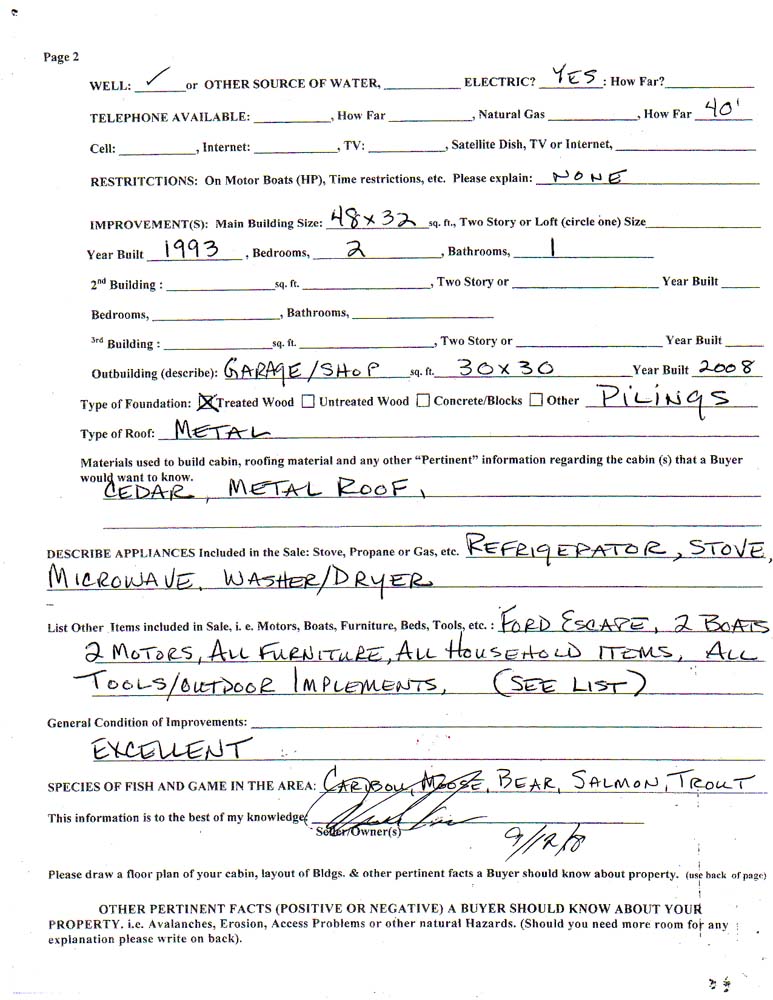 Page 2
WELL: ✓ or OTHER SOURCE OF WATER, ____________ ELECTRIC? YES : How Far? ____________
TELEPHONE AVAILABLE: ____________, How Far ____________, Natural Gas ____________, How Far 40'
Cell: ____________, Internet: ____________, TV: ____________, Satellite Dish, TV or Internet, ____________
RESTRITCTIONS: On Motor Boats (HP), Time restrictions, etc. Please explain: NONE
IMPROVEMENT(S): Main Building Size: 48 x 32 sq. ft., Two Story or Loft (circle one) Size ____________
Year Built 1993, Bedrooms, 2, Bathrooms, 1
2nd Building : ____________ sq. ft. ____________, Two Story or ____________ Year Built ______
Bedrooms, ____________, Bathrooms, ____________
3rd Building : ____________ sq. ft. ____________, Two Story or ____________ Year Built ______
Outbuilding (describe): GARAGE/SHOP sq. ft. 30 x 30 Year Built 2008
Type of Foundation: ☒ Treated Wood ☐ Untreated Wood ☐ Concrete/Blocks ☐ Other PILINGS
Type of Roof: METAL
Materials used to build cabin, roofing material and any other “Pertinent” information regarding the cabin (s) that a Buyer
would want to know.
CEDAR, METAL ROOF,
DESCRIBE APPLIANCES Included in the Sale: Stove, Propane or Gas, etc. REFRIGERATOR, STOVE,
MICROWAVE, WASHER/DRYER
List Other Items included in Sale, i. e. Motors, Boats, Furniture, Beds, Tools, etc. : FORD ESCAPE, 2 BOATS
2 MOTORS, ALL FURNITURE, ALL HOUSEHOLD ITEMS, ALL
TOOLS/OUTDOOR IMPLEMENTS, (SEE LIST)
General Condition of Improvements: ____________
EXCELLENT
SPECIES OF FISH AND GAME IN THE AREA: CARIBOU, MOOSE, BEAR, SALMON, TROUT
This information is to the best of my knowledge
Seller/Owner(s)
Please draw a floor plan of your cabin, layout of Bldgs. & other pertinent facts a Buyer should know about property. (use back of page)
OTHER PERTINENT FACTS (POSITIVE OR NEGATIVE) A BUYER SHOULD KNOW ABOUT YOUR
PROPERTY. i.e. Avalanches, Erosion, Access Problems or other natural Hazards. (Should you need more room for any
explanation please write on back).